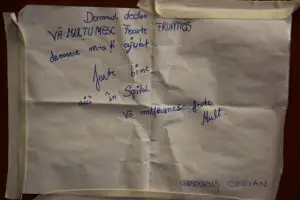 Domnul doctor
VĂ MULȚUMESC foarte FRUMOS
deoarece m-ați ajutat
foarte bine
aici în Spital
Vă mulțumesc foarte
Mult.